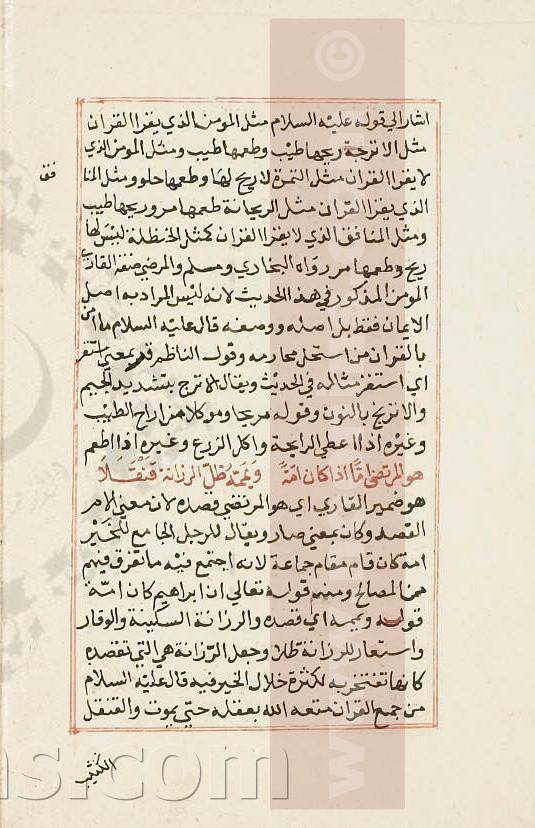 اشار الي قوله عليه السلام مثل المومن الذي يقرا القران
مثل الاترجة ريحها طيب وطعمها طيب ومثل المومن الذي
لا يقرا القران مثل التمرة لا ريح لها وطعمها حلو ومثل المنا
فق
الذي يقرا القران مثل الريحانة طعمها مر وريحها طيب
ومثل المنافق الذي لا يقرا القران كمثل الحنظلة ليس لها
ريح وطعمها مر رواه البخاري ومسلم والمرضي صفة القاري
المومن المذكور في هذا الحديث لانه ليس المراد به اصل
الايمان فقط بل اصله ووصفه قال عليه السلام ما امن
بالقران من استحل محارمه وقول الناظم قر بمعني استقر
اي استقر مثاله في الحديث ويقال الاترج بتشديد الجيم
والاترنج بالنون وقوله مريحا وموكلا من اراح الطيب
وغيره اذا اعطي الرايحة واكل الزرع وغيره اذا اطعم
هو المرتضى اما اذا كان امة ويممه ظل الرزانة قنقلا
هو ضمير القاري اي هو المرتضي قصده لان معني الام
القصد وكان بمعني صار ويقال للرجل الجامع للخير
امة كان قام مقام جماعة لانه اجتمع فيه ما تفرق فيهم
من المصالح ومنه قوله تعالي ان ابراهيم كان امة
قوله ويممه اي قصده والرزانة السكينة والوقار
واستعار للرزانة ظلا وجعل الرزانة هي التي تقصده
كانها تفتخر به لكثرة خلال الخير فيه قال عليه السلام
من جمع القران متعه الله بعقله حتي يموت والقنقل
الكثيب
ns.com